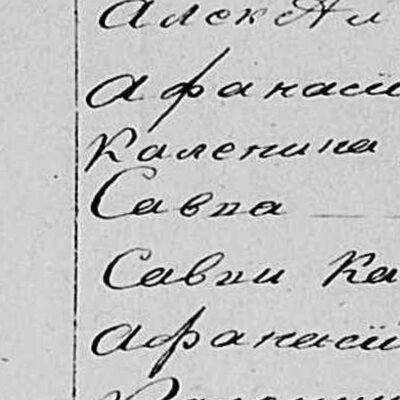 Алек
Афанасі
каленика
Савка
Савки ка
Афанасій